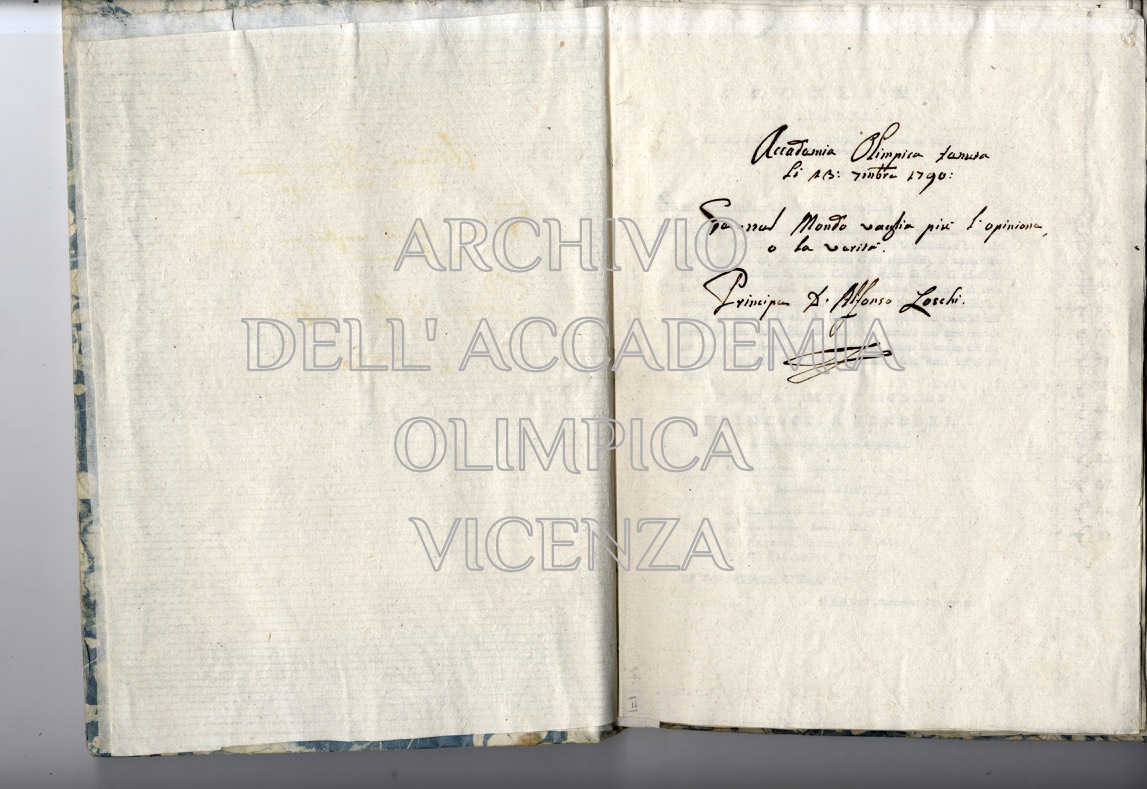 Accademia Olimpica tenuta
li 13: 7mbre 1790:
Se nel Mondo vaglia più l'opinione,
o la verità.
Principe D. Alfonso Loschi.
ARCHIVIO
DELL' ACCADEMIA
OLIMPICA
VICENZA
II